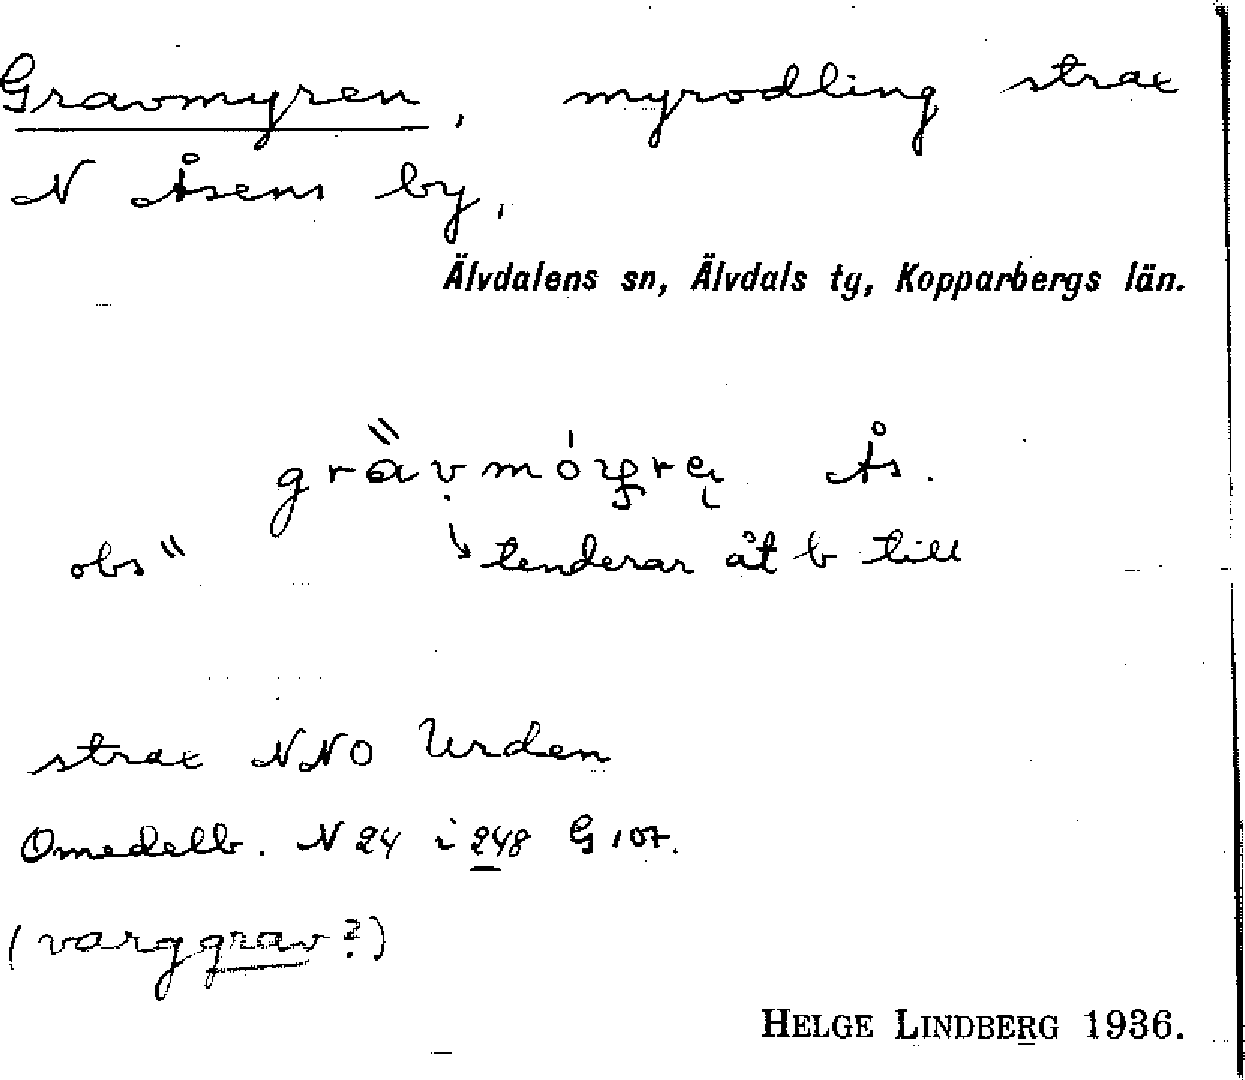 Gravmyren, myrodling strax
N Åsens by,
Älvdalens sn, Älvdals tg, Kopparbergs län.
Ås.
obs " tenderar åt b till
strax NNO Urden
Omedelb. N 24 i 248 G 107.
(varggrav?)
HELGE LINDBERG 1936.